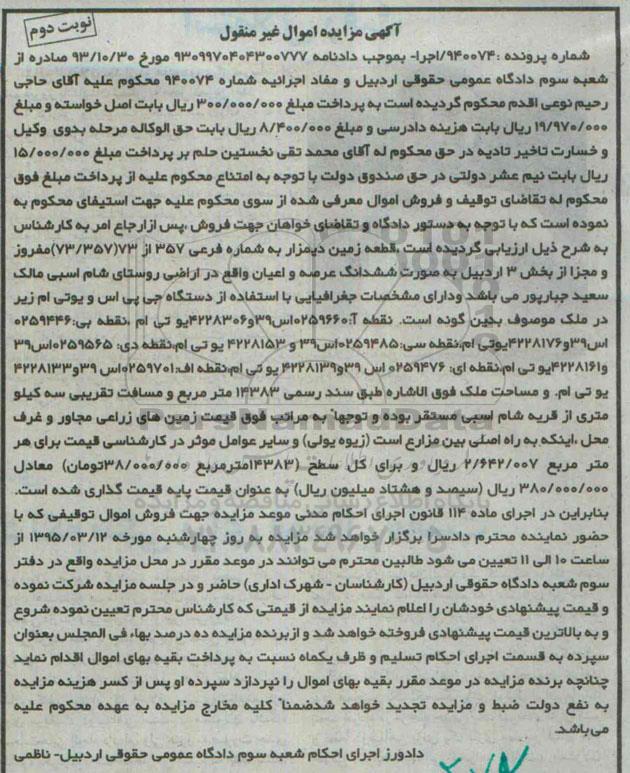 نوبت دوم
آگهی مزایده اموال غیر منقول
شماره پرونده :۹۴۰۰۷۴/اجرا- بموجب دادنامه ۹۳۰۹۹۷۰۴۰۴۳۰۰۷۷۷ مورخ ۹۳/۱۰/۳۰ صادره از
شعبه سوم دادگاه عمومی حقوقی اردبیل و مفاد اجرائیه شماره ۹۴۰۰۷۴ محکوم علیه آقای حاجی
رحیم نوعی اقدم محکوم گردیده است به پرداخت مبلغ ۳۰۰/۰۰۰/۰۰۰ ریال بابت اصل خواسته و مبلغ
۱۹/۹۷۰/۰۰۰ ریال بابت هزینه دادرسی و مبلغ ۸/۴۰۰/۰۰۰ ریال بابت حق الوکاله مرحله بدوی وکیل
و خسارت تاخیر تادیه در حق محکوم له آقای محمد تقی نخستین حلم بر پرداخت مبلغ ۱۵/۰۰۰/۰۰۰
ریال بابت نیم عشر دولتی در حق صندوق دولت با توجه به امتناع محکوم علیه از پرداخت مبلغ فوق
محکوم له تقاضای توقیف و فروش اموال معرفی شده از سوی محکوم علیه جهت استیفای محکوم به
نموده است که با توجه به دستور دادگاه و تقاضای خواهان جهت فروش ،پس ازارجاع امر به کارشناس
به شرح ذیل ارزیابی گردیده است .قطعه زمین دیمزار به شماره فرعی ۳۵۷ از ۷۳(۷۳/۳۵۷)مفروز
و مجزا از بخش ۳ اردبیل به صورت ششدانگ عرصه و اعیان واقع در اراضی روستای شام اسبی مالک
سعید جبارپور می باشد ودارای مشخصات جغرافیایی با استفاده از دستگاه جی پی اس و یوتی ام زیر
در ملک موصوف بدین گونه است. نقطه آ:۰۲۵۹۶۶۰اس۳۹و۴۲۲۸۳۰۶یو تی ام ،نقطه بی:۰۲۵۹۴۴۶
اس۳۹و۴۲۲۸۱۷۶یوتی ام،نقطه سی:۰۲۵۹۴۸۵اس۳۹ و ۴۲۲۸۱۵۳ یو تی ام،نقطه دی: ۰۲۵۹۵۶۵اس۳۹
و۴۲۲۸۱۶۱یو تی ام،نقطه ای: ۰۲۵۹۴۷۶ اس ۳۹و۴۲۲۸۱۳۹ یو تی ام،نقطه اف:۰۲۵۹۷۰۱اس ۳۹و۴۲۲۸۱۳۳
یو تی ام. و مساحت ملک فوق الاشاره طبق سند رسمی ۱۴۳۸۳ متر مربع و مسافت تقریبی سه کیلو
متری از قریه شام اسبی مستقر بوده و توجها" به مراتب فوق قیمت زمین های زراعی مجاور و غرف
محل ،اینکه به راه اصلی بین مزارع است (زیوه یولی) و سایر عوامل موثر در کارشناسی قیمت برای هر
متر مربع ۲/۶۴۲/۰۰۷ ریال و برای کل سطح (۱۴۳۸۳مترمربع ۳۸/۰۰۰/۰۰۰تومان) معادل
۳۸۰/۰۰۰/۰۰۰ ریال (سیصد و هشتاد میلیون ریال) به عنوان قیمت پایه قیمت گذاری شده است.
بنابراین در اجرای ماده ۱۱۴ قانون اجرای احکام مدنی موعد مزایده جهت فروش اموال توقیفی که با
حضور نماینده محترم دادسرا برگزار خواهد شد مزایده به روز چهارشنبه مورخه ۱۳۹۵/۰۳/۱۲ از
ساعت ۱۰ الی ۱۱ تعیین می شود طالبین محترم می توانند در موعد مقرر در محل مزایده واقع در دفتر
سوم شعبه دادگاه حقوقی اردبیل (کارشناسان - شهرک اداری) حاضر و در جلسه مزایده شرکت نموده
و قیمت پیشنهادی خودشان را اعلام نمایند مزایده از قیمتی که کارشناس محترم تعیین نموده شروع
و به بالاترین قیمت پیشنهادی فروخته خواهد شد و ازبرنده مزایده ده درصد بهاء فی المجلس بعنوان
سپرده به قسمت اجرای احکام تسلیم و ظرف یکماه نسبت به پرداخت بقیه بهای اموال اقدام نماید
چنانچه برنده مزایده در موعد مقرر بقیه بهای اموال را نپردازد سپرده او پس از کسر هزینه مزایده
به نفع دولت ضبط و مزایده تجدید خواهد شدضمنا" کلیه مخارج مزایده به عهده محکوم علیه
می‌باشد.
دادورز اجرای احکام شعبه سوم دادگاه عمومی حقوقی اردبیل- ناظمی